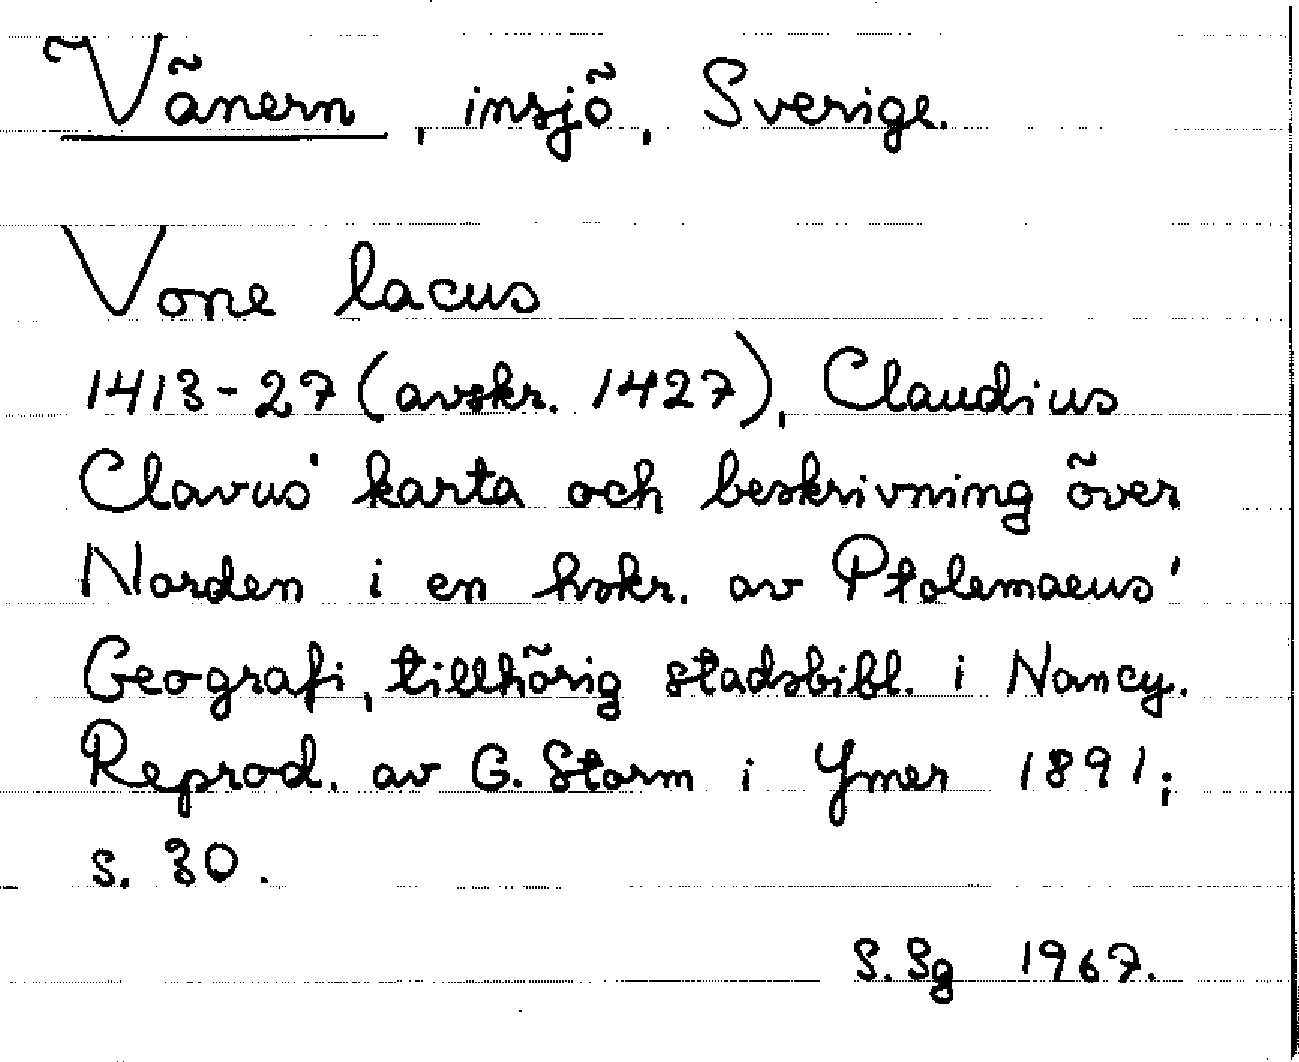 Vänern, insjö, Sverige.
Vone lacus
1413-27 (avskr. 1427), Claudius
Clavus' karta och beskrivning över
Norden i en hskr. av Ptolemaeus'
Geografi, tillhörig stadsbibl. i Nancy.
Reprod. av G. Storm i Ymer 1891;
s. 30.
S. Sg 1967.